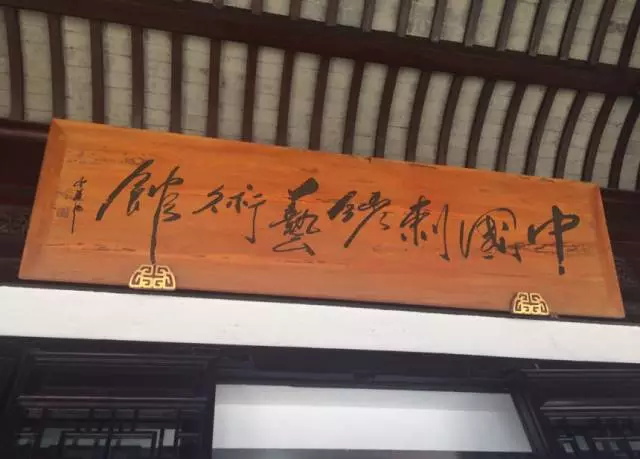 中國刺繡藝術館